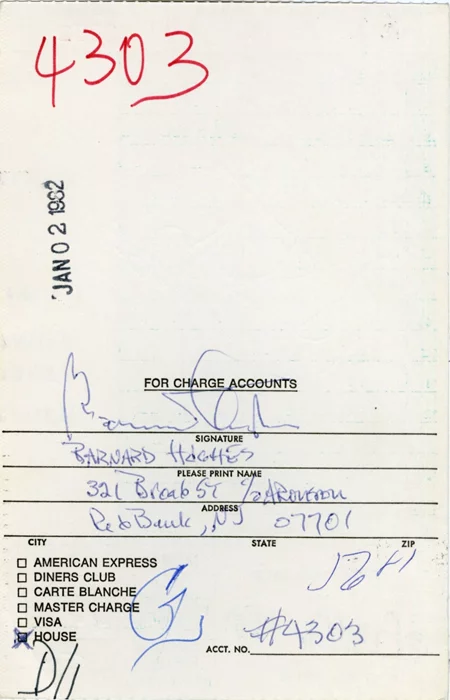 4303
JAN 02 1982
FOR CHARGE ACCOUNTS
SIGNATURE
BARNARD HUGHES
PLEASE PRINT NAME
321 Broad St c/o
ADDRESS
Red Bank, NJ 07701
CITY STATE ZIP
AMERICAN EXPRESS
DINERS CLUB
CARTE BLANCHE
MASTER CHARGE
VISA
HOUSE
#4303
ACCT. NO.